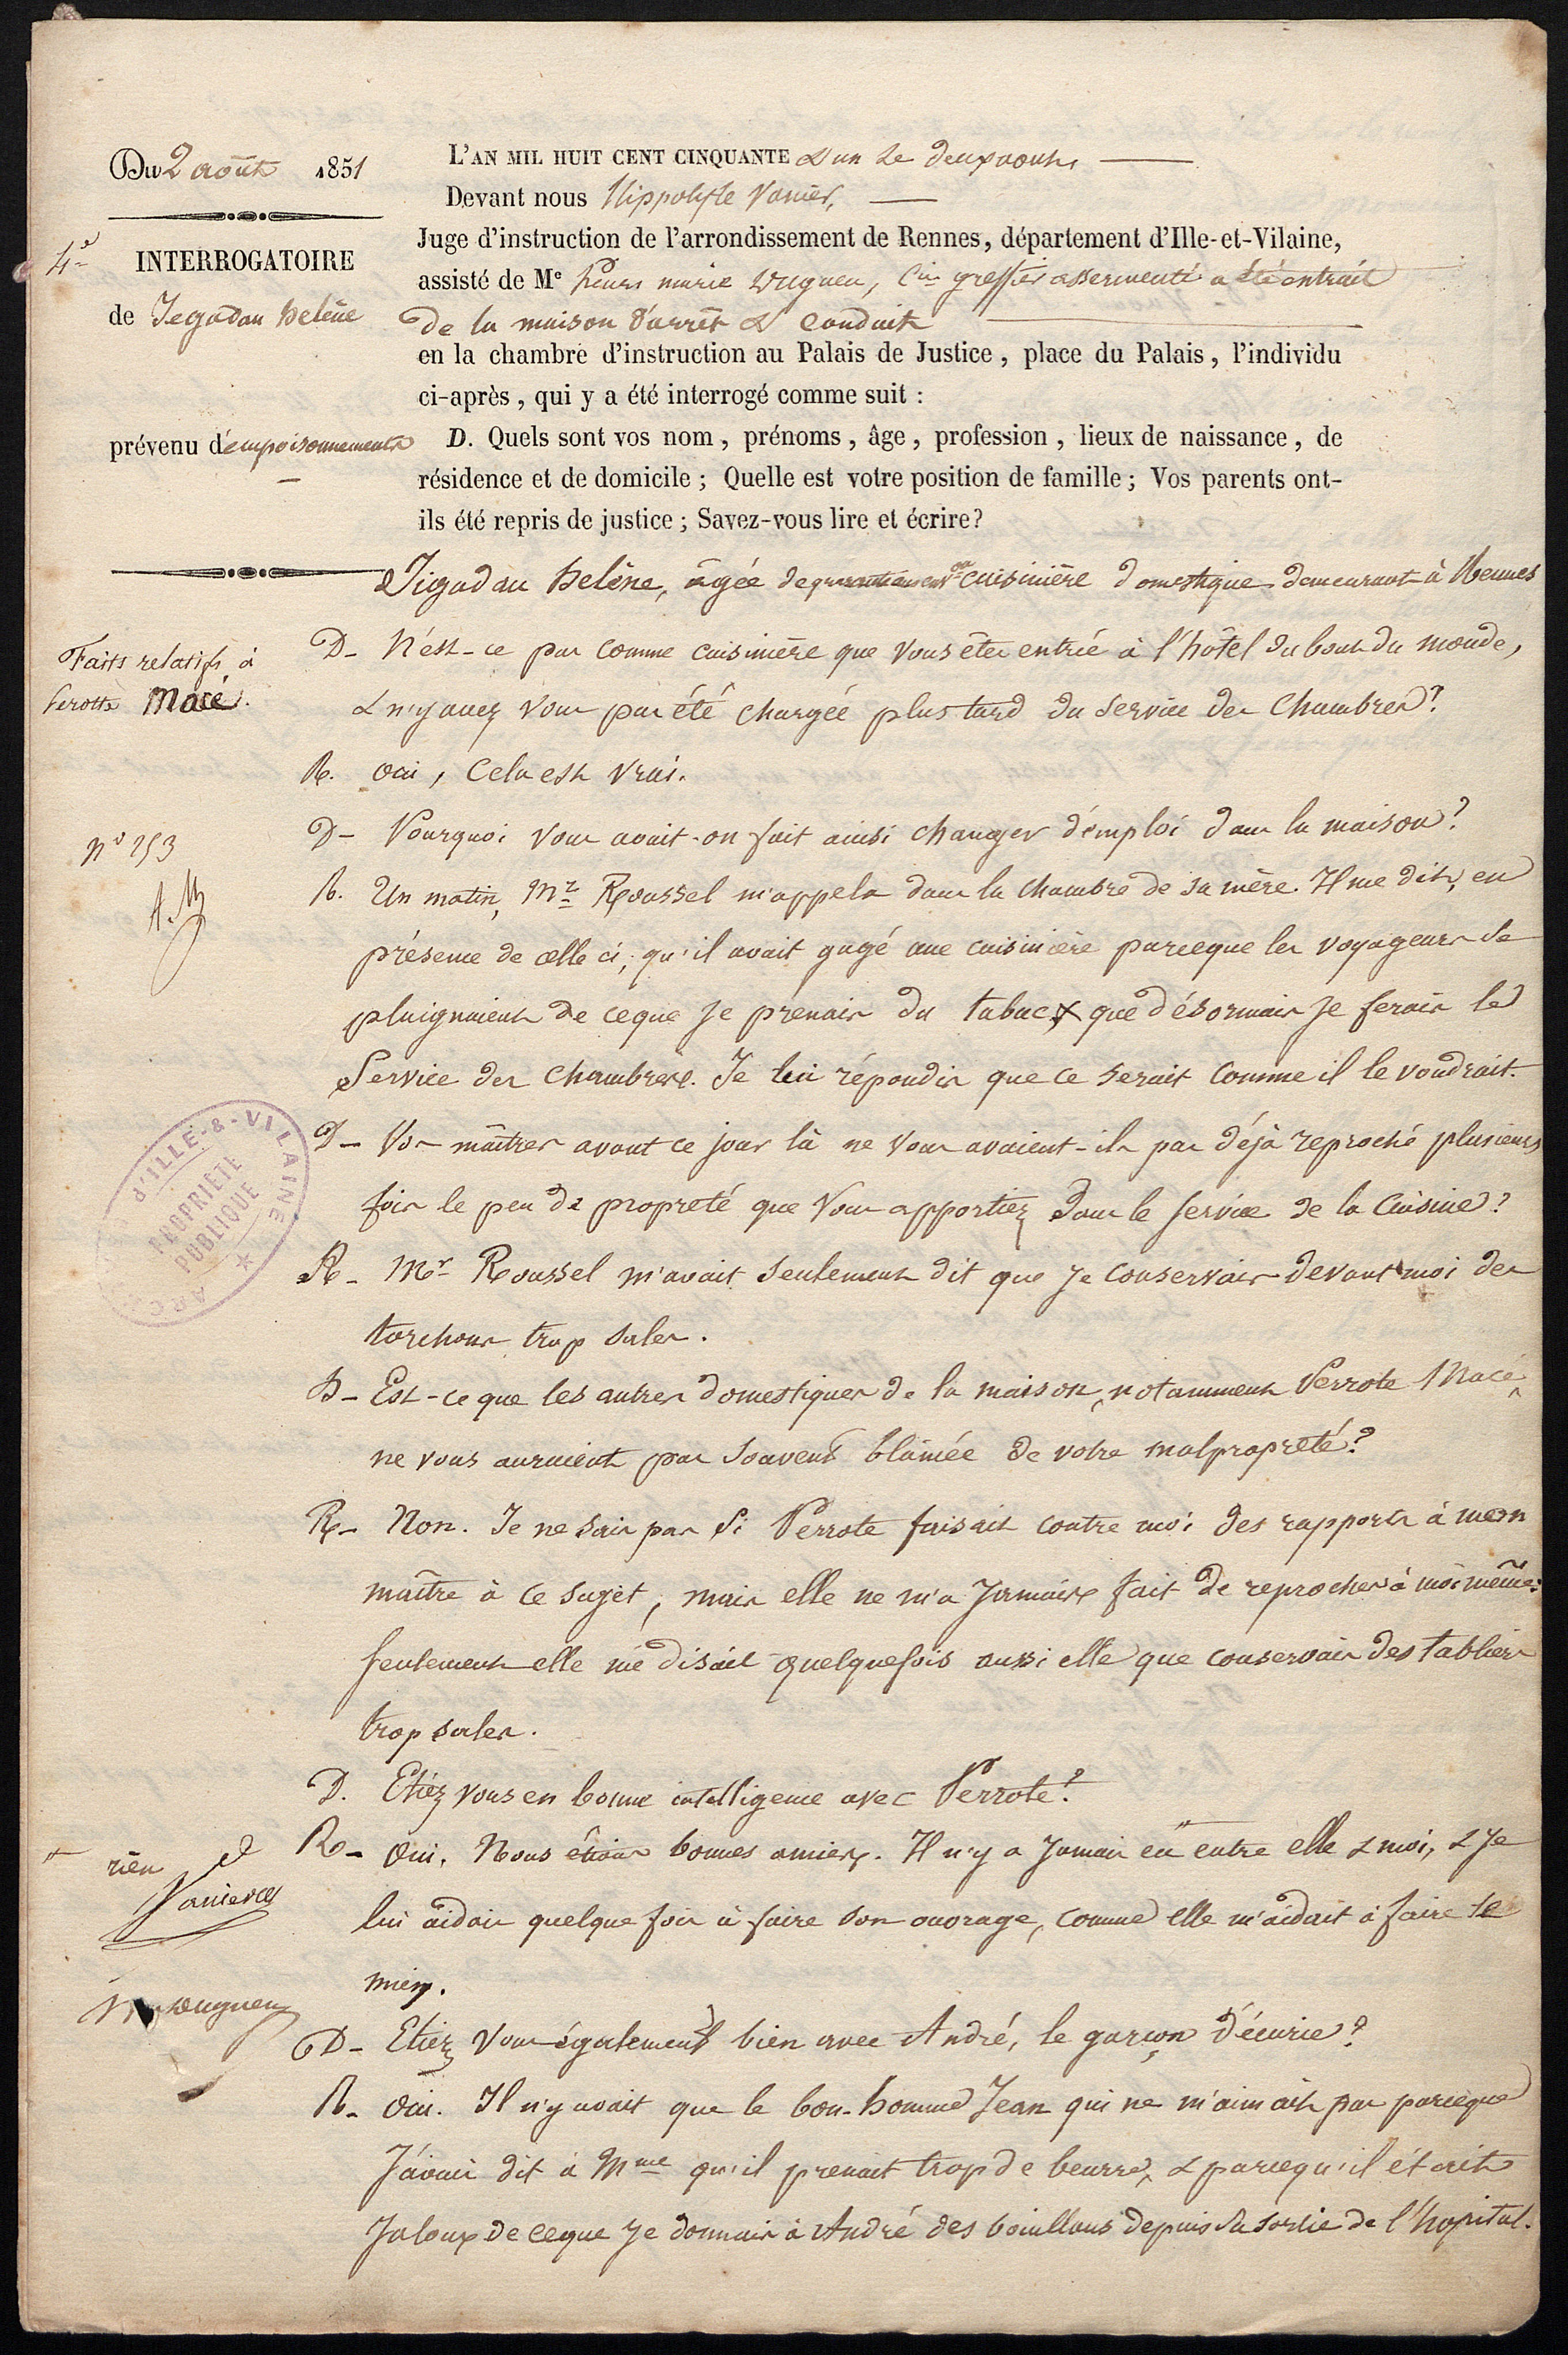 Du 2 août 1851
4e INTERROGATOIRE
de Jegadau helène
prévenu d'empoisonnements
L'AN MIL HUIT CENT CINQUANTE & un le deux aout,
Devant nous Hippolyte Vanier,
Juge d'instruction de l'arrondissement de Rennes, département d'Ille-et-Vilaine,
assisté de Me marie, Cis greffier assermenté a été extrait
de la maison d'arrêt & conduit
en la chambre d'instruction au Palais de Justice, place du Palais, l'individu
ci-après, qui y a été interrogé comme suit :
D. Quels sont vos nom, prénoms, âge, profession, lieux de naissance, de
résidence et de domicile ; Quelle est votre position de famille ; Vos parents ont-
ils été repris de justice ; Savez-vous lire et écrire ?
Jégadau helène, âgée de cuisinière domestique demeurant à Rennes
Faits relatifs à
Perotte Macé.
D- N'est-ce pas comme cuisinière que vous êtes entrée à l'hôtel du bout du monde,
& n'y avez vous pas été chargée plus tard du service des Chambres ?
R. oui, cela est vrai.
n° 253
D- Pourquoi vous avait-on fait ainsi changer d'emploi dans la maison ?
R. Un matin, Mr Roussel m'appela dans la chambre de sa mère. Il me dit, en
présence de celle ci, qu'il avait gagé une cuisinière parceque les voyageurs se
plaignaient de ceque je prenais du tabac & que désormais je ferais le
Service des chambres. Je lui répondis que ce serait comme il le voudrait.
D- Vos maîtres avant ce jour là ne vous avaient-ils pas déjà reproché plusieurs
fois le peu de propreté que vous apportiez dans le service de la Cuisine ?
R- Mr Roussel m'avait seulement dit que je conservais devant moi des
torchons trop sales.
D- Est-ce que les autres domestiques de la maison, notamment Perrote Macé,
ne vous auraient pas souvent blâmée de votre malpropreté ?
R- Non. Je ne sais pas si Perrote faisait contre moi des rapports à mon
maître à ce sujet, mais elle ne m'a jamais fait de reproches à moi même :
seulement elle me disait quelquefois aussi elle que conservais des tabliers
trop sales.
D. Etiez vous en bonne intelligence avec Perrote ?
R- Oui. Nous étions bonnes amies. Il n'y a jamais eu entre elle & moi, & je
lui aidais quelque fois à faire son ouvrage, comme elle m'aidait à faire le
mien.
rien
Vanier
D- Etiez vous également bien avec André, le garçon d'écurie ?
R- Oui. Il n'y avait que le bon-homme Jean qui ne m'aimait pas parceque
J'avais dit à Mme qu'il prenait trop de beurre, & parcequ'il était
Jaloux de ceque je donnais à André des bouillons depuis sa sortie de l'hopital.
d'ILLE-&-VILAINE
PROPRIÉTÉ
PUBLIQUE